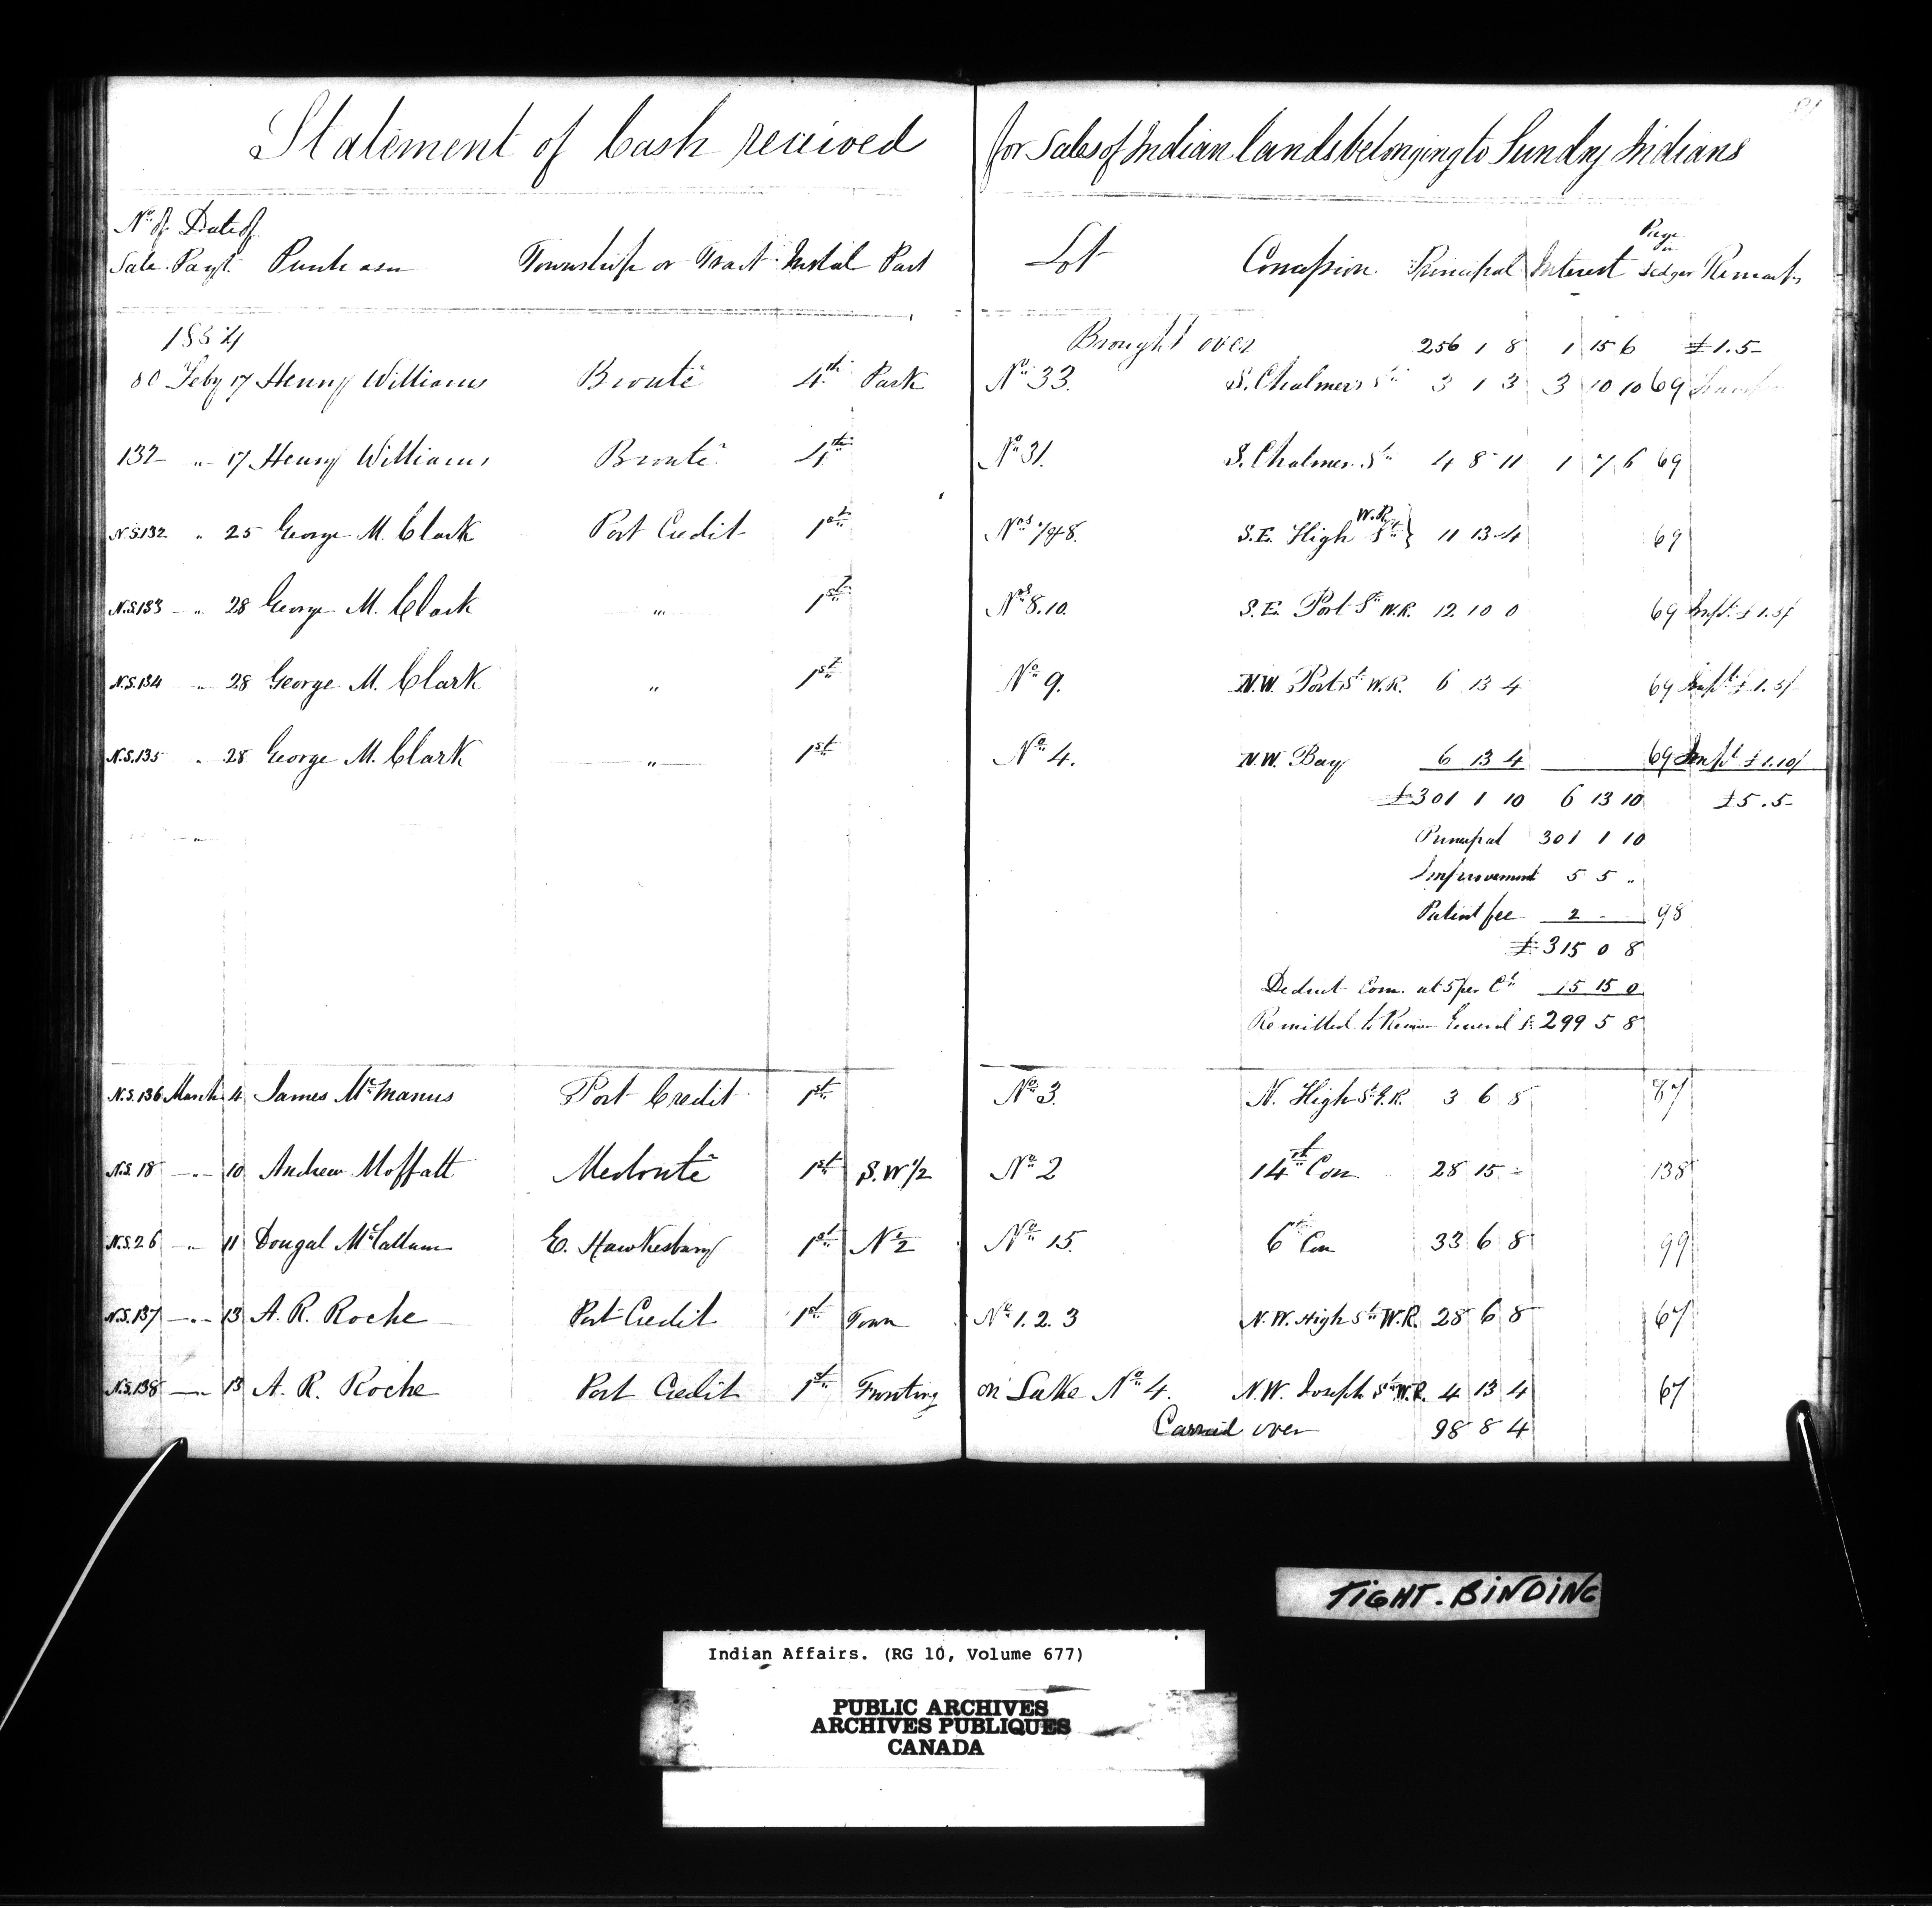 Statement of Cash received for Sales of Indian lands belonging to Sundry Indians
No. of Sale Date of Payt. Purchaser Township or Tract Instal Part Lot Concession Principal Interest Page in Ledger Remarks
1854 Brought over 256 1 8 1 15 6 £1.5-
80 Feby 17 Henry Williams Bronté 4th Park No. 33. S. Chalmers St. 3 1 3 3 10 10 69
132 " 17 Henry Williams Bronté 4th No. 31. S. Chalmers St. 4 8 11 1 7 6 69
N.S. 132 " 25 George M. Clark Port Credit 1st Nos. S.E. High St. W.R. 11 13 4 69
N.S. 133 " 28 George M. Clark " 1st Nos. 8.10. S.E. Port St. W.R. 12 10 0 69 Impt. £1.5/
N.S. 134 " 28 George M. Clark " 1st No. 9. N.W. Port St. W.R. 6 13 4 69 Impt. £1.5/
N.S. 135 " 28 George M. Clark " 1st No. 4. N.W. Bay 6 13 4 69 Impt. £1.10/
£301 1 10 6 13 10 £5.5-
Principal 301 1 10
Improvement 5 5 "
Patent fee 2 - 98
£315 0 8
Deduct Com. at 5 per Ct. 15 15 0
Remitted to Receiver General £299 5 8
N.S. 136 March 4 James McManus Port Credit 1st No. 3. N. High St. E.R. 3 6 8 87
N.S. 18 " 10 Andrew Moffatt Medonté 1st S.W.1/2 No. 2 14th Con 28 15 - 138
N.S. 26 " 11 Dougal McCallum E. Hawkesbury 1st N 1/2 No. 15. 6th Con 33 6 8 99
N.S. 137 " 13 A. R. Roche Port Credit 1st Town No. 1. 2. 3 N.W. High St. W.R. 28 6 8 67
N.S. 138 " 13 A. R. Roche Port Credit 1st Fronting on Lake No. 4. N.W. Joseph St. W.R. 4 13 4 67
Carried over 98 8 4
TIGHT-BINDING
Indian Affairs. (RG 10, Volume 677)
PUBLIC ARCHIVES
ARCHIVES PUBLIQUES
CANADA